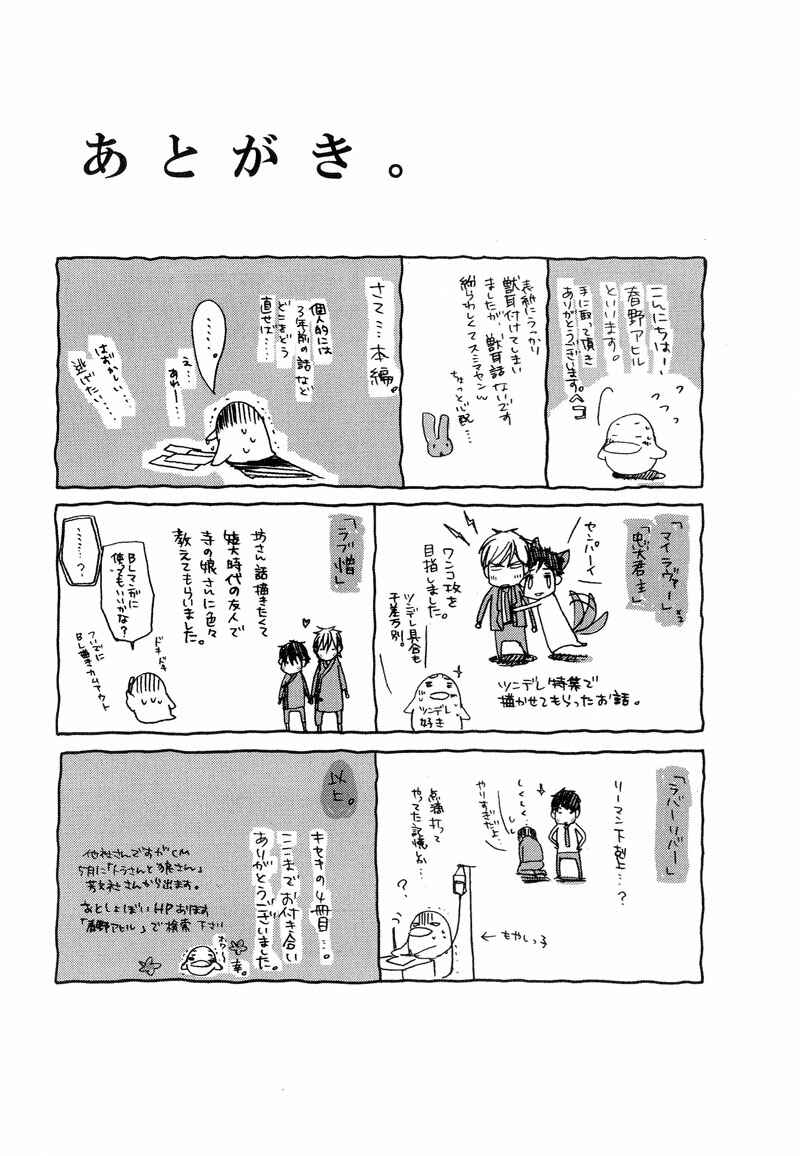 あとがき。
こんにちはー
春野アヒル
といいます。
手に取って頂き
ありがとうございます。ペコ
表紙にうっかり
獣耳付けてしまい
ましたが、獣耳話ないです
紛らわしくてスミマセン
ちょっと心配…
さて…本編。
個人的には
3年前の話など
どこをどう
直せば……
……。
え…
あわー…
はずかしい
逃げたい…
「マイラヴァー」
「忠犬君主」
×2
ヤンパーイ
ワンコ攻を
目指しました。
ツンデレ具合も
千差万別。
ツンデレ
好き
ツンデレ特集で
描かせてもらったお話。
「ラブ僧」
坊さん話描きたくて
短大時代の友人で
寺の娘さんに色々
教えてもらいました。
BLマンガに
使ってもいいかな?
……?
ドキドキ
ついでに
BL描きカムアウト
「ラバーリバー」
リーマン下剋上…?
しくしく…
やりすぎだよ…
点滴打って
やってた記憶しか…
?
←もやしっ子
以上。
キセキの4冊目…。
ここまでお付き合い
ありがとうございました。
他社さんですがCM
5月に「トラさんと狼さん」
芳文社さんから出ます。
あとしょぼいHPあります
「春野アヒル」で検索下さい
幸。